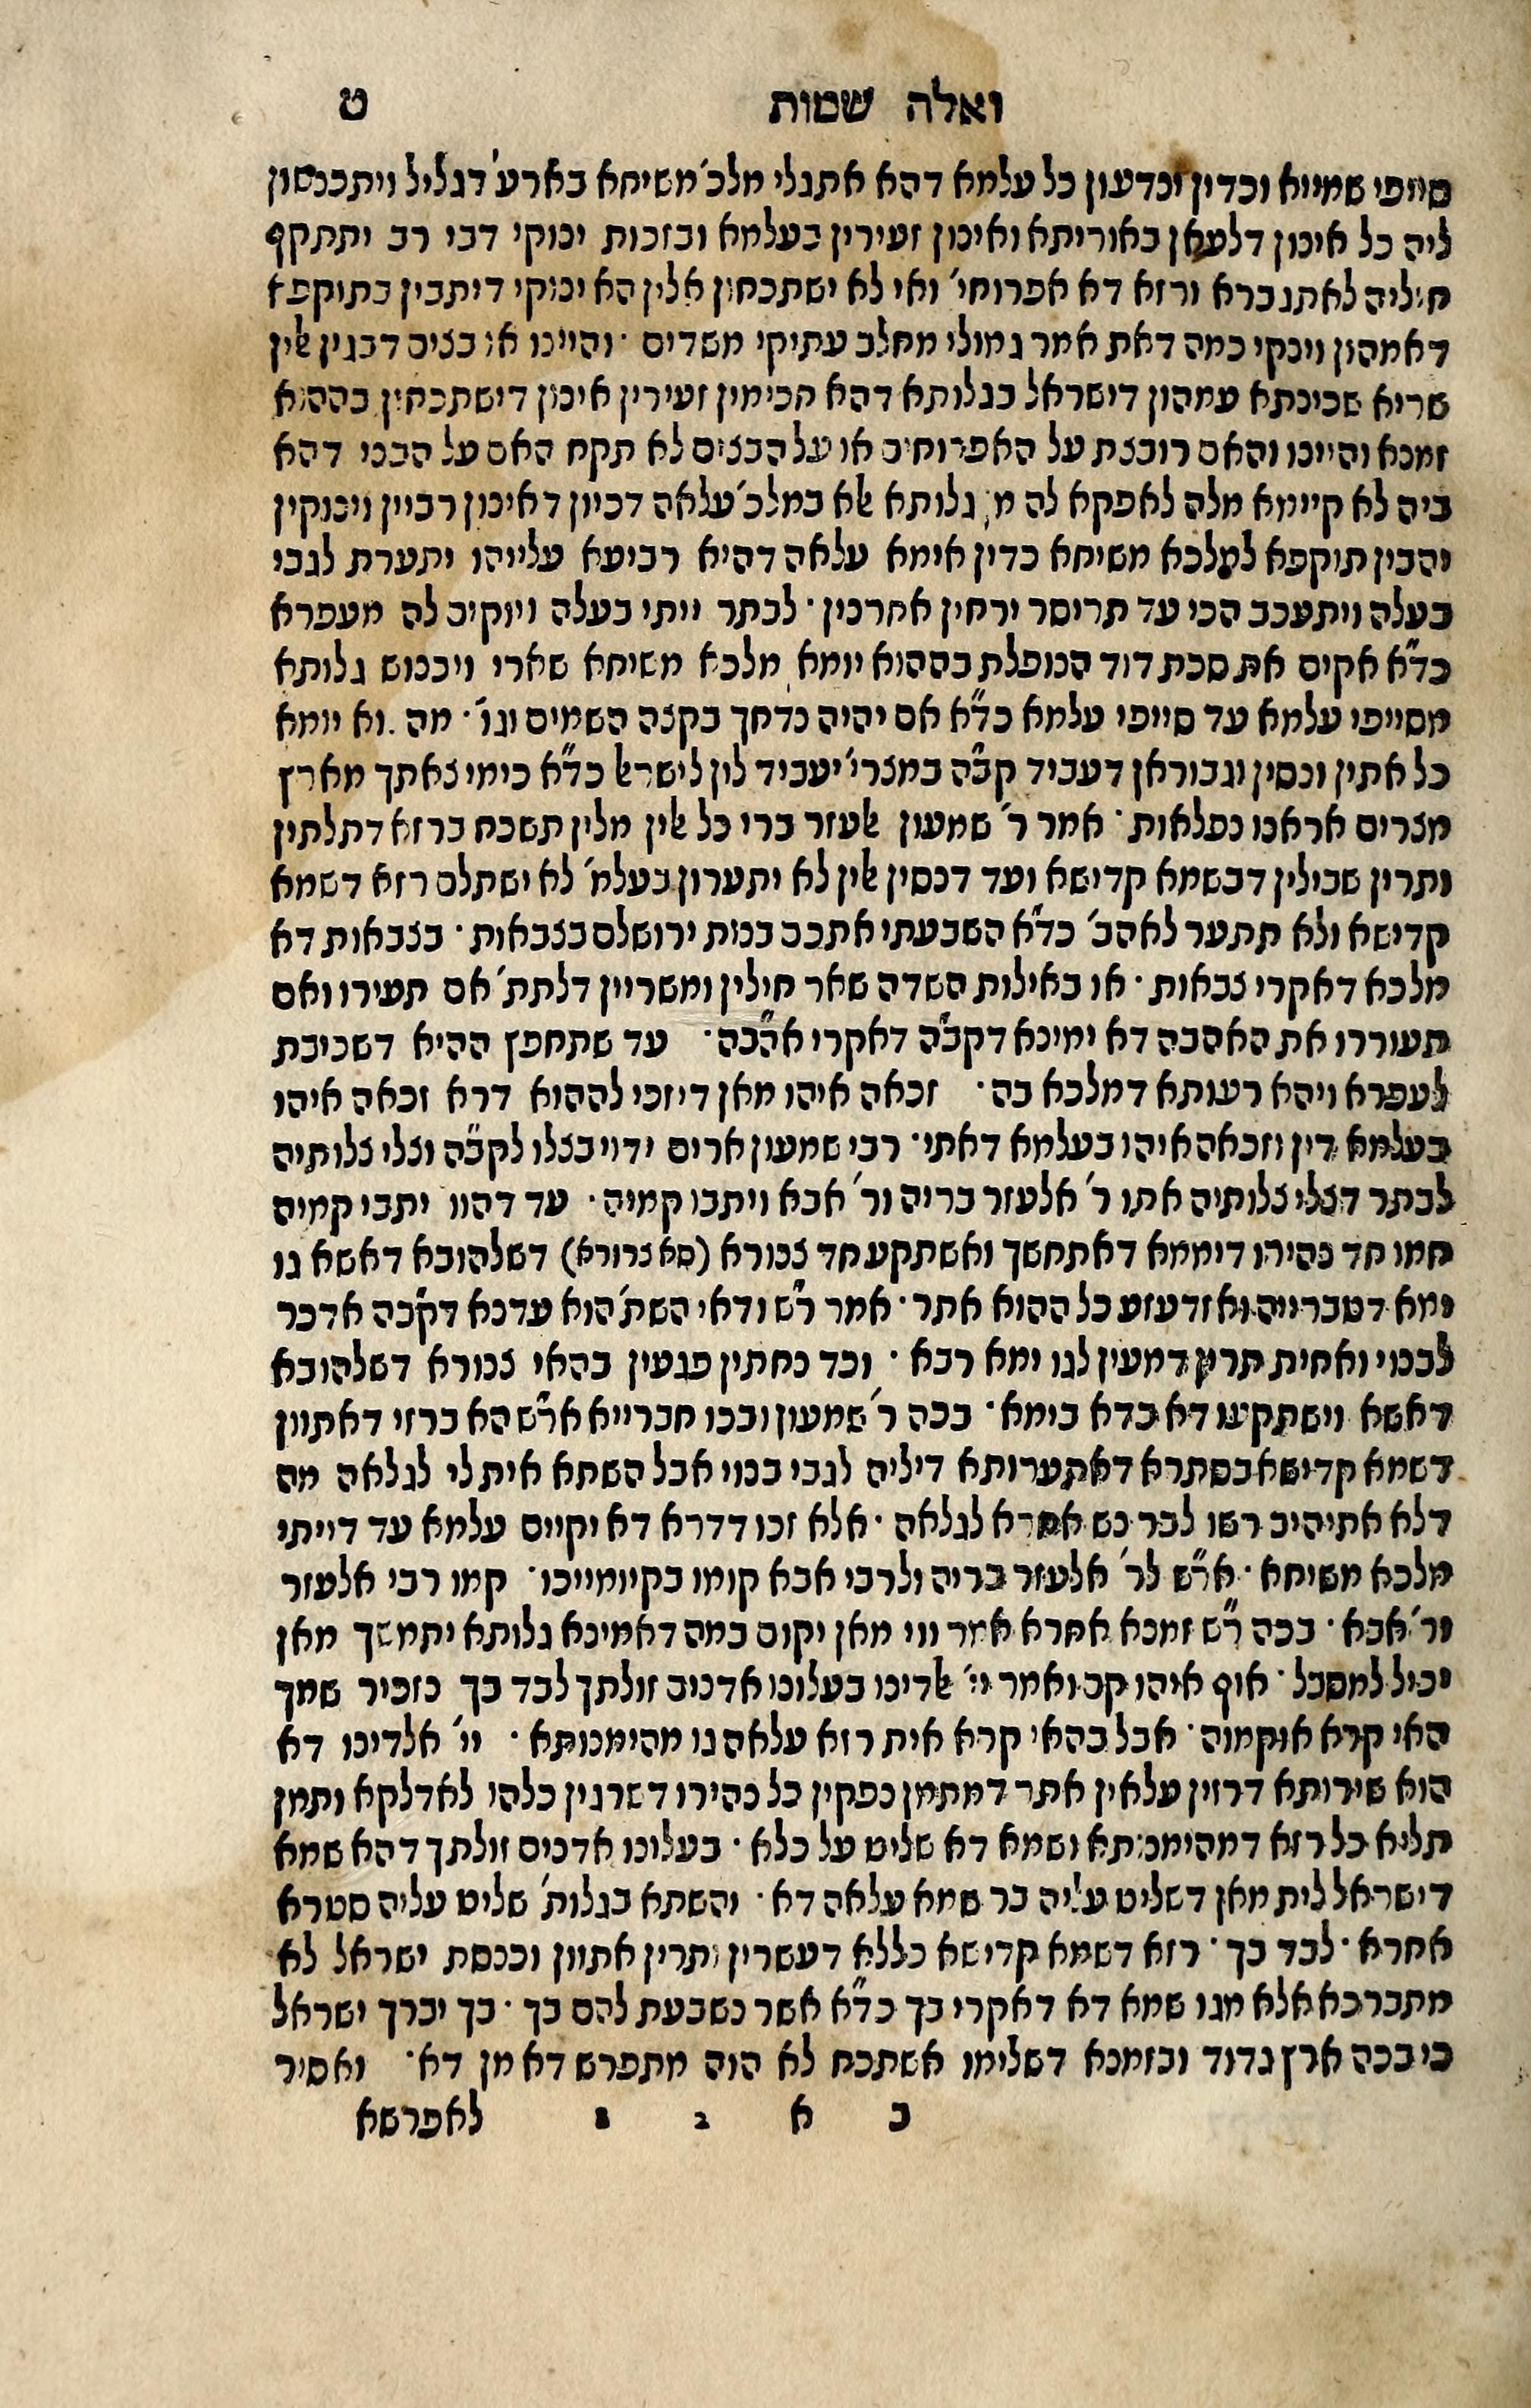 ואלה שמות ט
סייפי שמייא וכדין ינדעון כל עלמא דהא אתגלי מלכ׳ משיחא בארע׳ דגליל ויתכנשון
ליה כל אינון דלעאן באוריתא ואינון זעירין בעלמא ובזכות ינוקי דבי רב יתתקף
חיליה לאתגברא ורזא דא אפרוחי׳ ואי לא ישתכחון אלין הא ינוקי דיתבין בתוקפא
דאמהון וינקי כמה דאת אמר גמולי מחלב עתיקי משדים · והיינו או בצים דבגין אלין
שריא שכינתא עמהון דישראל בגלותא דהא חכימין זעירין אינון דישתכחון בההוא
זמנא והיינו והאם רובצת על האפרוחים או על הבצים לא תקח האם על הבני דהא
ביה לא קיימא מלה לאפקא לה מן גלותא אלא במלכ׳ עלאה דכיון דאינון רביין וינוקין
יהבין תוקפא למלכא משיחא כדין אימא עלאה דהיא רביעא עלייהו יתערת לגבי
בעלה ויתעכב הכי עד תריסר ירחין אחרנין · לבתר ייתי בעלה ויוקים לה מעפרא
כד״א אקים את סכת דוד הנופלת בההוא יומא מלכא משיחא שארי ויכנוש גלותא
מסייפי עלמא עד סייפי עלמא כד״א אם יהיה נדחך בקצה השמים וגו׳ · מההוא יומא
כל אתין ונסין וגבוראן דעביד קב״ה במצרי׳ יעביד לון לישראל כד״א כימי צאתך מארץ
מצרים אראנו נפלאות · אמר ר׳ שמעון אלעזר ברי כל אלין מלין תשכח ברזא דתלתין
ותרין שבילין דבשמא קדישא ועד דנסין אלין לא יתערון בעלמ׳ לא ישתלם רזא דשמא
קדישא ולא תתער לאהב׳ כד״א השבעתי אתכם בנות ירושלם בצבאות · בצבאות דא
מלכא דאקרי צבאות · או באילות השדה שאר חילין ומשריין דלתת׳ אם תעירו ואם
תעוררו את האהבה דא ימינא דקב״ה דאקרי אהבה · עד שתחפץ ההיא דשכיבת
לעפרא ויהא רעותא דמלכא בה · זכאה איהו מאן דיזכי לההוא דרא זכאה איהו
בעלמא דין וזכאה איהו בעלמא דאתי · רבי שמעון ארים ידוי בצלו לקב״ה וצלי צלותיה
לבתר דצלי צלותיה אתו ר׳ אלעזר בריה ור׳ אבא ויתבו קמיה · עד דהוו יתבי קמיה
חמו חד נהירו דיממא דאתחשך ואשתקע חד צנורא (סא צרורא) דשלהובא דאשא גו
ימא דטברייה ואזדעזע כל ההוא אתר · אמר ר״ש ודאי השת׳ הוא עדנא דקב״ה אדכר
לבנוי ואחית תרין דמעין לגו ימא רבא · וכד נחתין פגעין בהאי צנורא דשלהובא
דאשא וישתקעו דא בדא בימא · בכה ר׳ שמעון ובכו חברייא אר״ש הא ברזי דאתוון
דשמא קדישא בסתרא דאתערותא דיליה לגבי בנוי אבל השתא אית לי לגלאה מה
דלא אתיהיב רשו לבר נש אחרא לגלאה · אלא זכו דדרא דא יקיים עלמא עד דייתי
מלכא משיחא · אר״ש לר׳ אלעזר בריה ולרבי אבא קומו בקיומייכו · קמו רבי אלעזר
ור׳ אבא · בכה ר״ש זמנא אחרא אמר ווי מאן יקום במה דאמינא גלותא יתמשך מאן
יכיל למסבל · אוף איהו קם ואמר יי׳ אלדינו בעלונו אדנים זולתך לבד בך נזכיר שמך
האי קרא אוקמוה · אבל בהאי קרא אית רזא עלאה גו מהימנותא · יי׳ אלדינו דא
הוא שירותא דרזין עלאין אתר דמתמן נפקין כל נהירו דשרגין כלהו לאדלקא ותמן
תליא כל רזא דמהימנותא ושמא דא שליט על כלא · בעלונו אדנים זולתך דהא שמא
דישראל לית מאן דשליט עליה בר שמא עלאה דא · והשתא בגלות׳ שליט עליה סטרא
אחרא · לבד בך · רזא דשמא קדישא כללא דעשרין ותרין אתוון וכנסת ישראל לא
מתברכא אלא מגו שמא דא דאקרי בך כד״א אשר נשבעת להם בך · בך יברך ישראל
כי בכה ארץ גדוד ובזמנא דשלימו אשתכח לא הוה מתפרש דא מן דא · ואסיר
ב א 2 8 לאפרשא